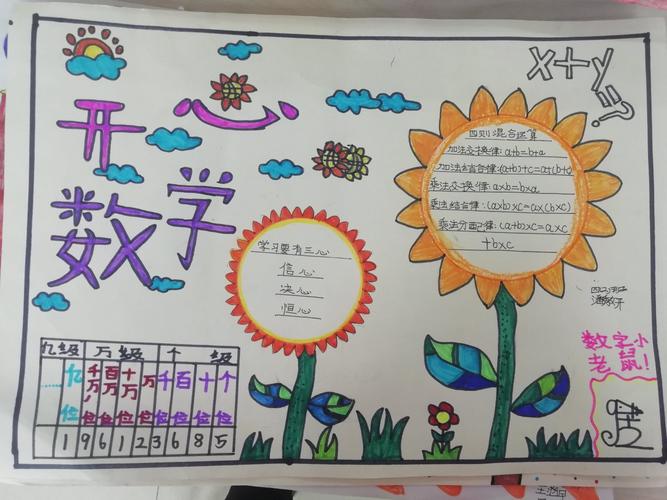 开心
数学
x+y=?
四则混合运算
加法交换律:a+b=b+a
加法结合律:(a+b)+c=a+(b+c)
乘法交换律:a×b=b×a
乘法结合律:(a×b)×c=a×(b×c)
乘法分配律:(a+b)×c=a×c
+b×c
学习要有三心
信心
决心
恒心
数字小
老鼠!
亿级 万级 个级
…… 亿 千万 百万 十万 万 千 百 十 个
位 位 位 位 位 位 位 位 位
1 9 6 1 2 3 6 8 5